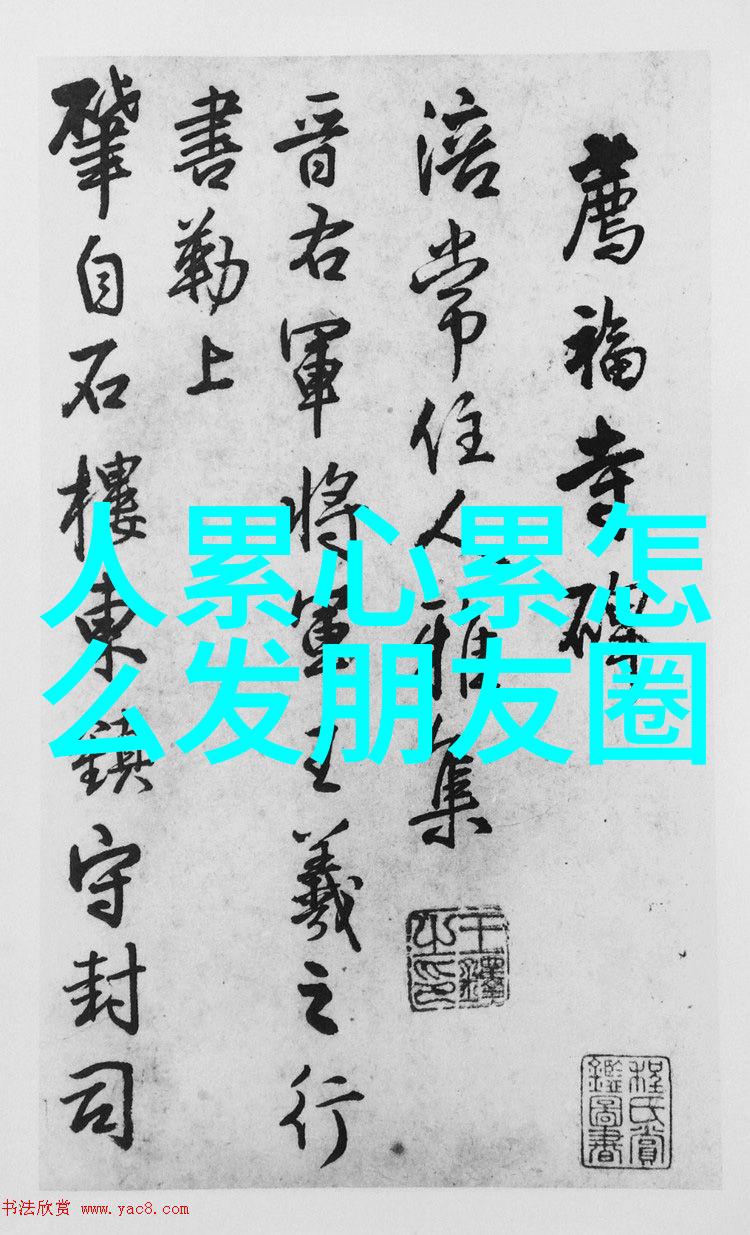 薦福寺碑
涪常住人雅集
晉右軍將軍王羲之行
書勒上
肇自石樓東鎮守封司
人累心累怎
么发朋友圈
王鐸
之印
程氏賞
鑑圖書
书法欣赏 www.yac8.com